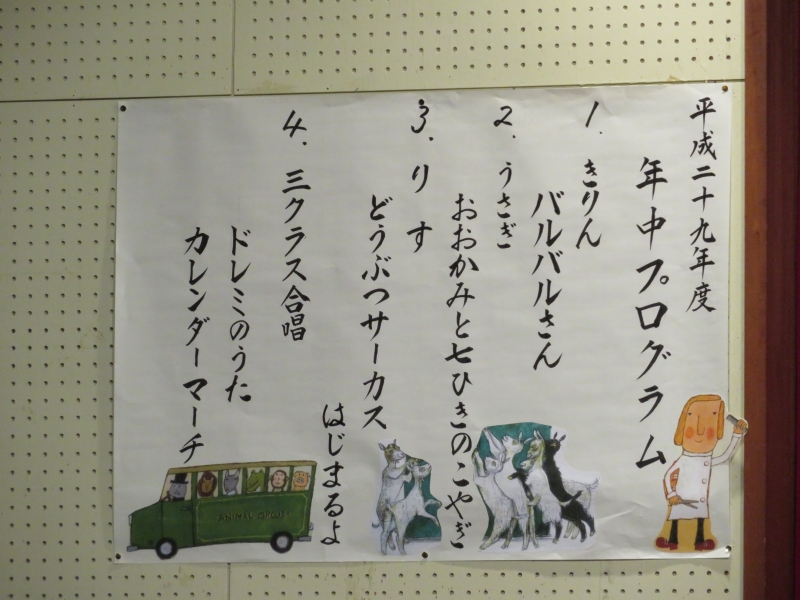 平成二十九年度
年中プログラム
1. きりん
バルバルさん
2. うさぎ
おおかみと七ひきのこやぎ
3. りす
どうぶつサーカス
はじまるよ
4. 三クラス合唱
ドレミのうた
カレンダーマーチ
ANIMAL CIRCUS